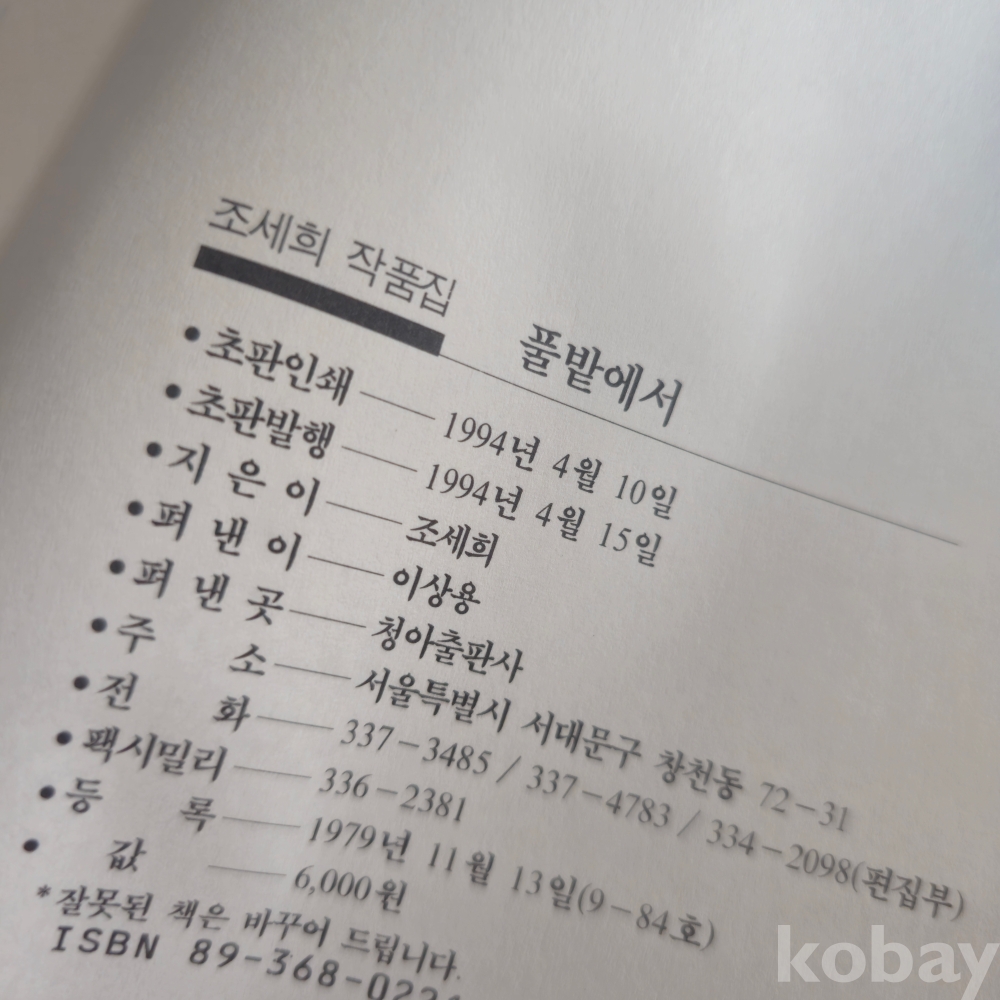 조세희 작품집
풀밭에서
• 초판인쇄 — 1994년 4월 10일
• 초판발행 — 1994년 4월 15일
• 지 은 이 — 조세희
• 펴 낸 이 — 이상용
• 펴 낸 곳 — 청아출판사
• 주 소 — 서울특별시 서대문구 창천동 72-31
• 전 화 — 337-3485 / 337-4783 / 334-2098(편집부)
• 팩시밀리 — 336-2381
• 등 록 — 1979년 11월 13일(9-84호)
• 값 — 6,000원
*잘못된 책은 바꾸어 드립니다.
ISBN 89-368-
kobay